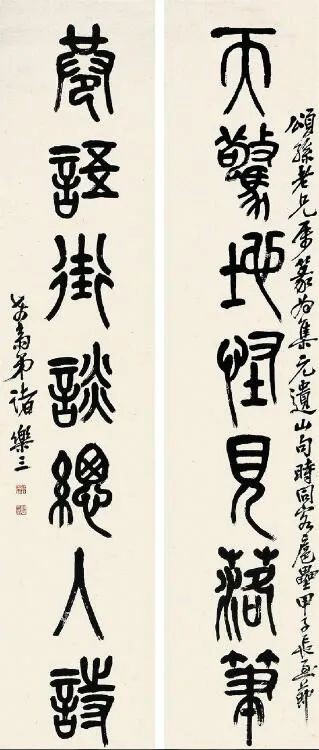 天驚地怪見落筆
頌孫老兄屬篆為集元遺山句時同客扈壘甲子長至節
巷語街談總入詩
希齋弟諸樂三